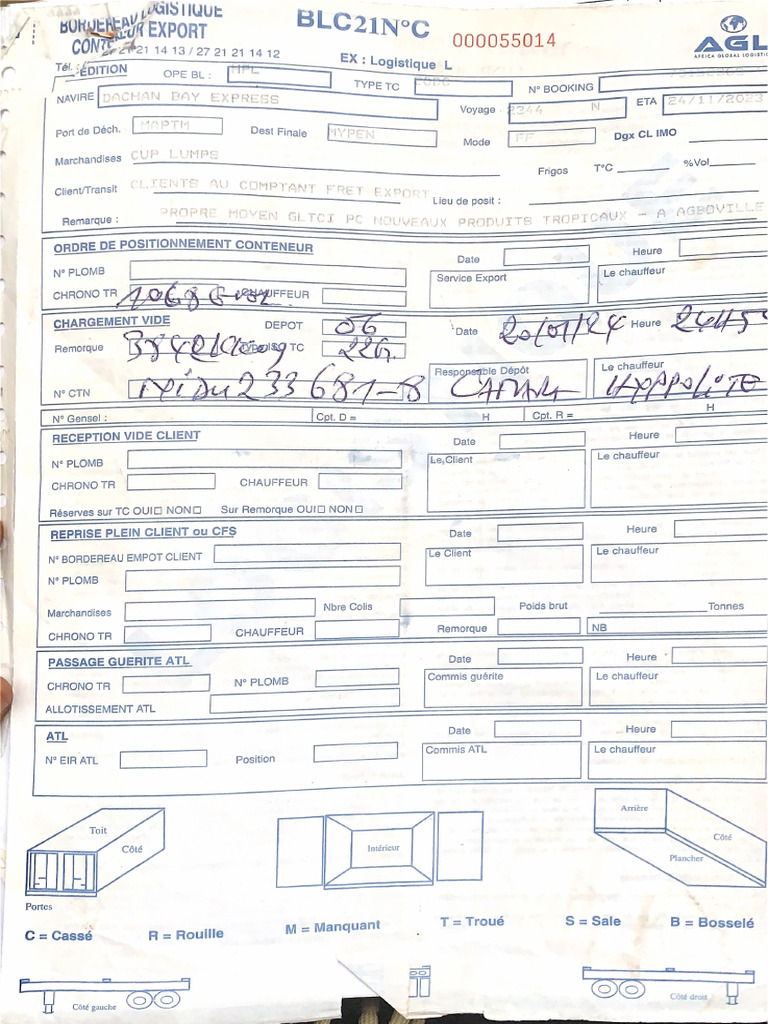 BORDEREAU LOGISTIQUE BLC21N°C 000055014 AGL
CONTENEUR EXPORT AFRICA GLOBAL LOGISTICS
Tél. : 27 21 21 14 13 / 27 21 21 14 12 EX : Logistique L
EDITION OPE BL : HPL TYPE TC N° BOOKING
NAVIRE DACHAN BAY EXPRESS Voyage 2344 N ETA 24/11/2023
Port de Déch. MAPTM Dest Finale MYPEN Mode FF Dgx CL IMO
Marchandises CUP LUMPS Frigos T°C %Vol
Client/Transit CLIENTS AU COMPTANT FRET EXPORT Lieu de posit :
Remarque : PROPRE MOYEN GLTCI PC NOUVEAUX PRODUITS TROPICAUX - A AGBOVILLE
ORDRE DE POSITIONNEMENT CONTENEUR Date Heure
N° PLOMB Service Export Le chauffeur
CHRONO TR CHAUFFEUR
CHARGEMENT VIDE DEPOT 56 Date 20/01/24 Heure
Remorque TC
N° CTN 233681-8 Responsable Dépôt Le chauffeur HYPPOLITE
N° Genset : Cpt. D = H Cpt. R = H
RECEPTION VIDE CLIENT Date Heure
N° PLOMB Le Client Le chauffeur
CHRONO TR CHAUFFEUR
Réserves sur TC OUI□ NON□ Sur Remorque OUI□ NON□
REPRISE PLEIN CLIENT ou CFS Date Heure
N° BORDEREAU EMPOT CLIENT Le Client Le chauffeur
N° PLOMB
Marchandises Nbre Colis Poids brut Tonnes
CHRONO TR CHAUFFEUR Remorque NB
PASSAGE GUERITE ATL Date Heure
CHRONO TR N° PLOMB Commis guérite Le chauffeur
ALLOTISSEMENT ATL
ATL Date Heure
N° EIR ATL Position Commis ATL Le chauffeur
Toit Côté Portes
Intérieur
Arrière Côté Plancher
C = Cassé R = Rouille M = Manquant T = Troué S = Sale B = Bosselé
Côté gauche Côté droit